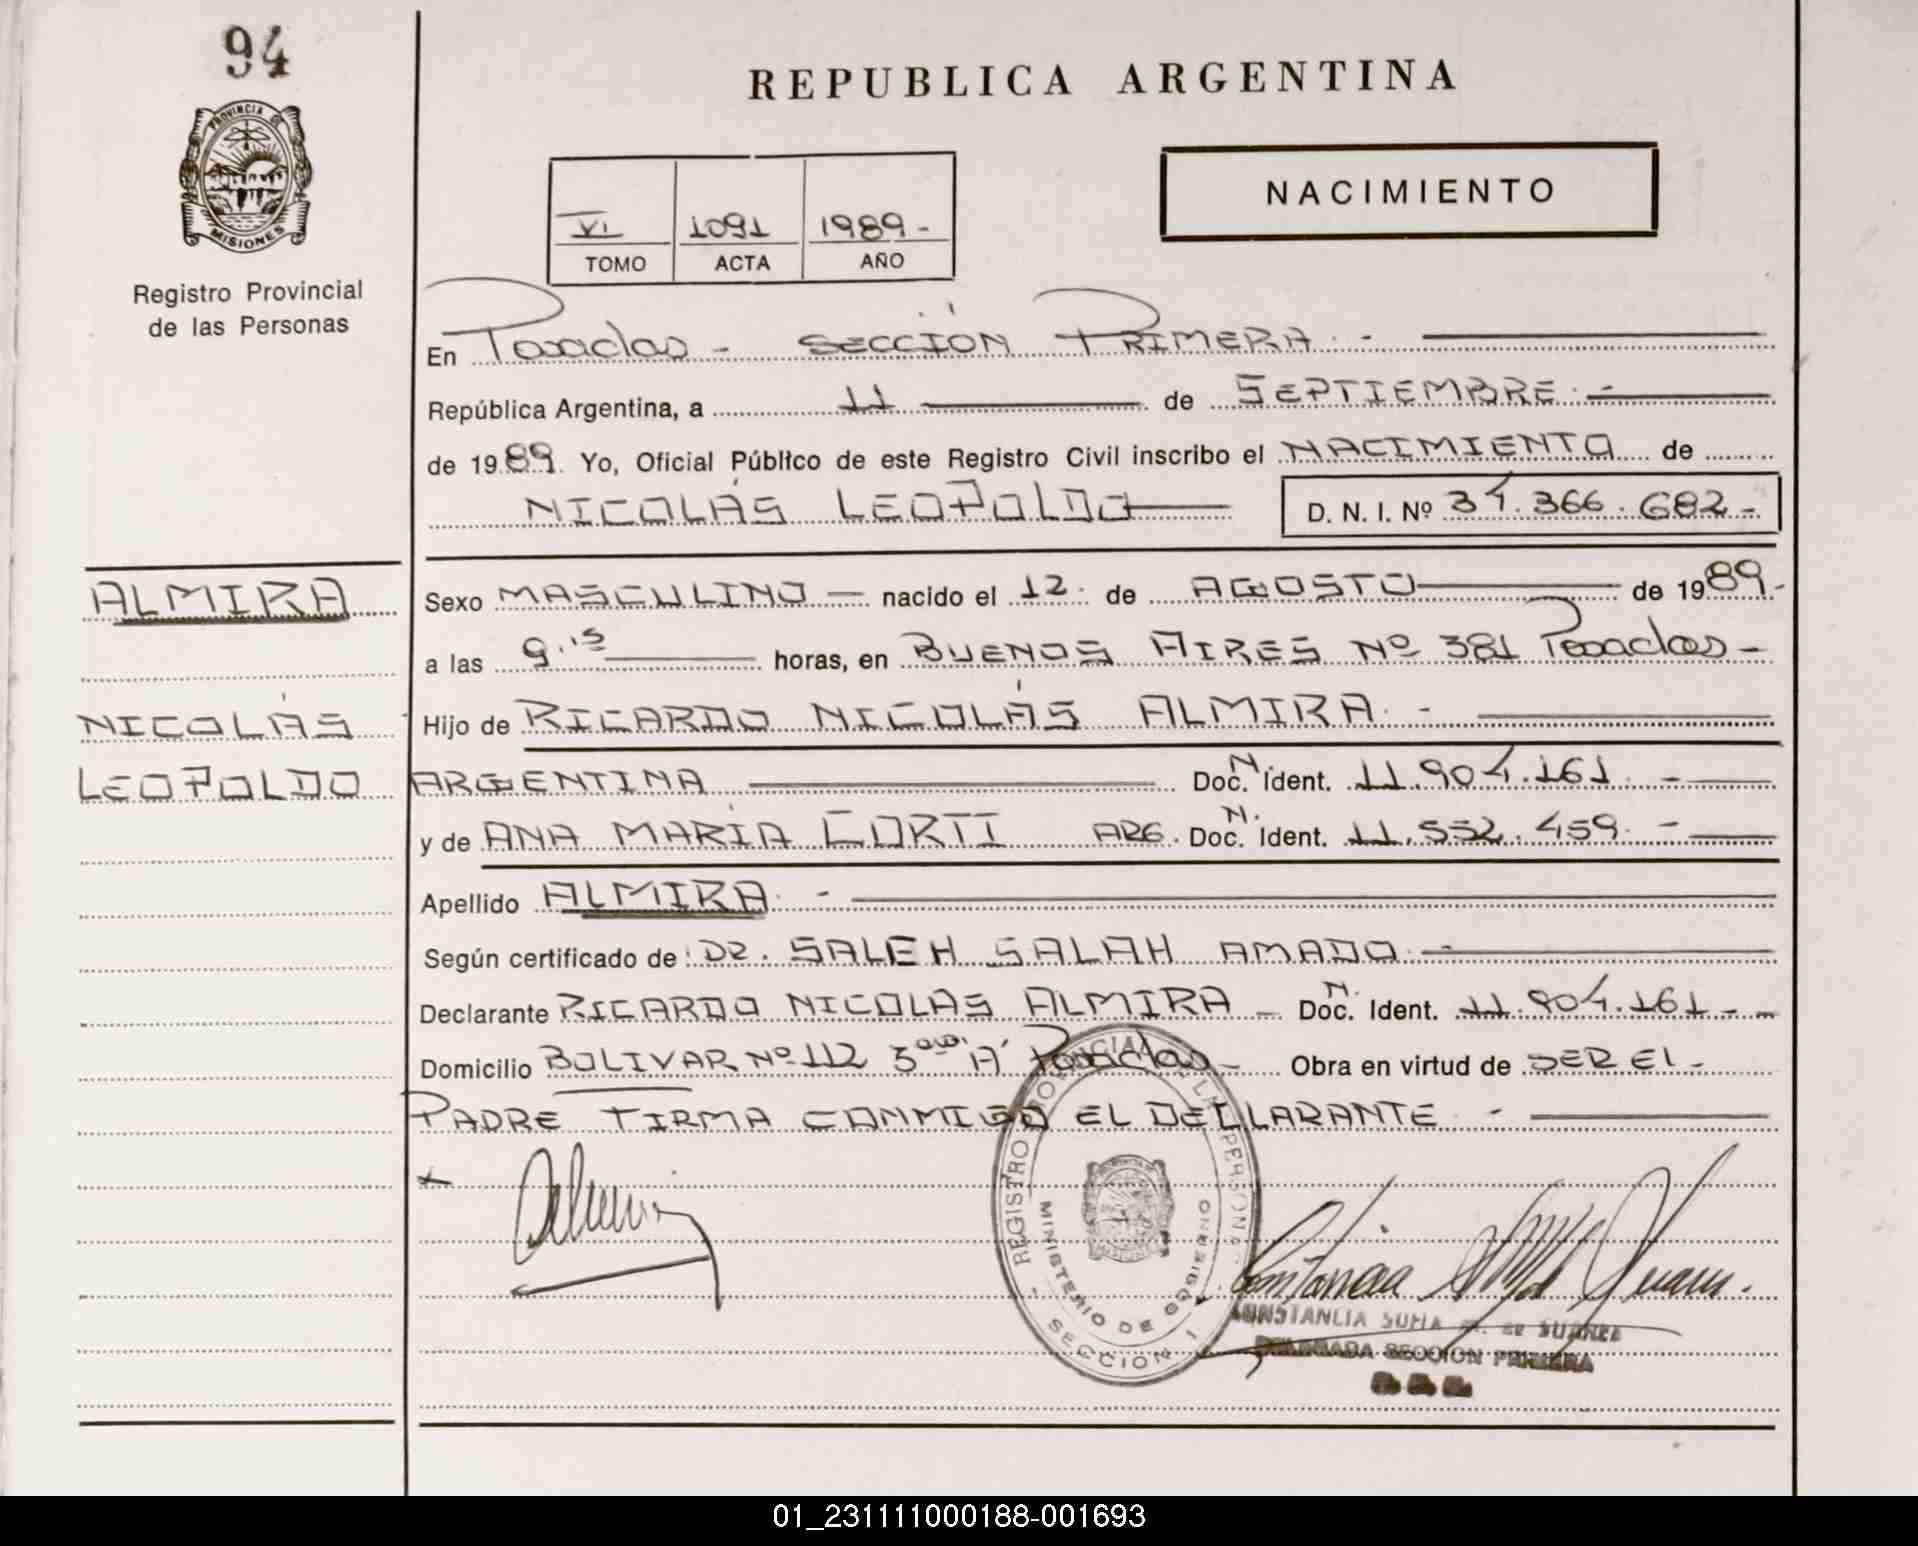 94
PROVINCIA DE
MISIONES
Registro Provincial
de las Personas
REPUBLICA ARGENTINA
NACIMIENTO
VI 1091 1989-
TOMO ACTA AÑO
En Posadas - SECCIÓN PRIMERA. -
República Argentina, a 11 de SEPTIEMBRE. -
de 1989. Yo, Oficial Público de este Registro Civil inscribo el NACIMIENTO de
NICOLÁS LEOPOLDO D. N. I. Nº 34.366.682-
ALMIRA
NICOLÁS
LEOPOLDO
Sexo MASCULINO — nacido el 12. de AGOSTO de 1989.-
a las 9.15 horas, en BUENOS AIRES Nº 381 Posadas -
Hijo de RICARDO NICOLÁS ALMIRA. -
ARGENTINA Doc. N. Ident. 11.904.161. -
y de ANA MARÍA CORTI ARG. Doc. N. Ident. 11.552.459. -
Apellido ALMIRA. -
Según certificado de: DR. SALEH SALAH AMADO. -
Declarante RICARDO NICOLAS ALMIRA - Doc. N. Ident. 11.904.161 - -
Domicilio BOLIVAR Nº 112 5 "A" Posadas - Obra en virtud de SER EL -
PADRE FIRMA CONMIGO EL DECLARANTE. -
REGISTRO PROVINCIAL DE LAS PERSONAS
MINISTERIO DE GOBIERNO
- SECCION I -
MISIONES
CONSTANCIA SOFIA M. de SUAREZ
DELEGADA SECCION PRIMERA
01_231111000188-001693